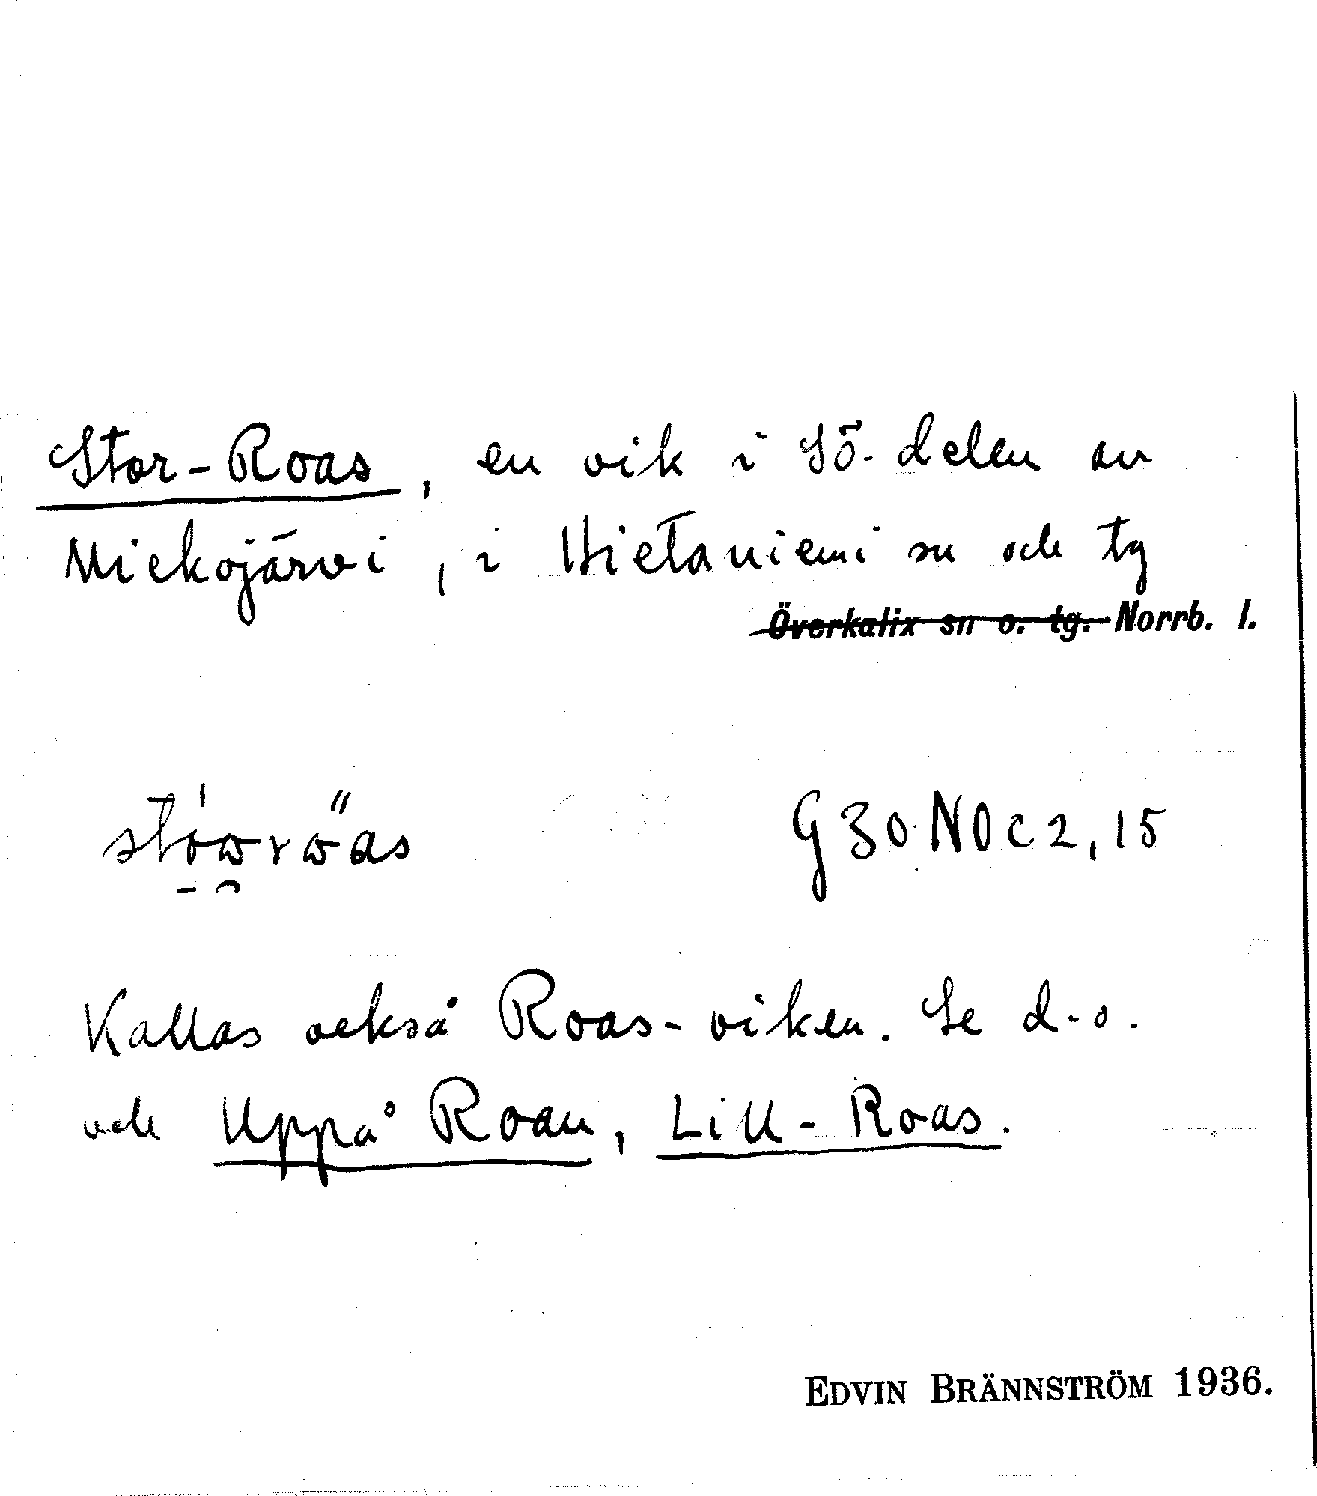 Stor-Roas, en vik i Sö. delen av
Miekojärvi, i Hietaniemi sn och tg
Överkalix sn o. tg. Norrb. l.
G30NOc2,15
Kallas också Roas-viken. Se d.o.
och Uppå Roan, Lill-Roas.
EDVIN BRÄNNSTRÖM 1936.